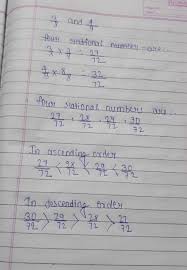 and
four rational number are :-
= 27/72
= 32/72
four rational numbers are :-
27/72 , 28/72 , 29/72 , 30/72
In ascending order
27/72 < 28/72 < 29/72 < 30/72
In descending order
30/72 > 29/72 > 28/72 > 27/72